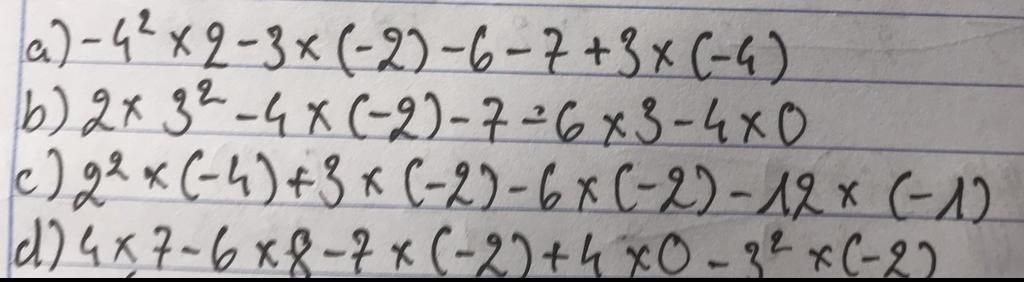 a) -4² × 2 - 3 × (-2) - 6 - 7 + 3 × (-4)
b) 2 × 3² - 4 × (-2) - 7 - 6 × 3 - 4 × 0
c) 2² × (-4) + 3 × (-2) - 6 × (-2) - 12 × (-1)
d) 4 × 7 - 6 × 8 - 7 × (-2) + 4 × 0 - 3² × (-2)